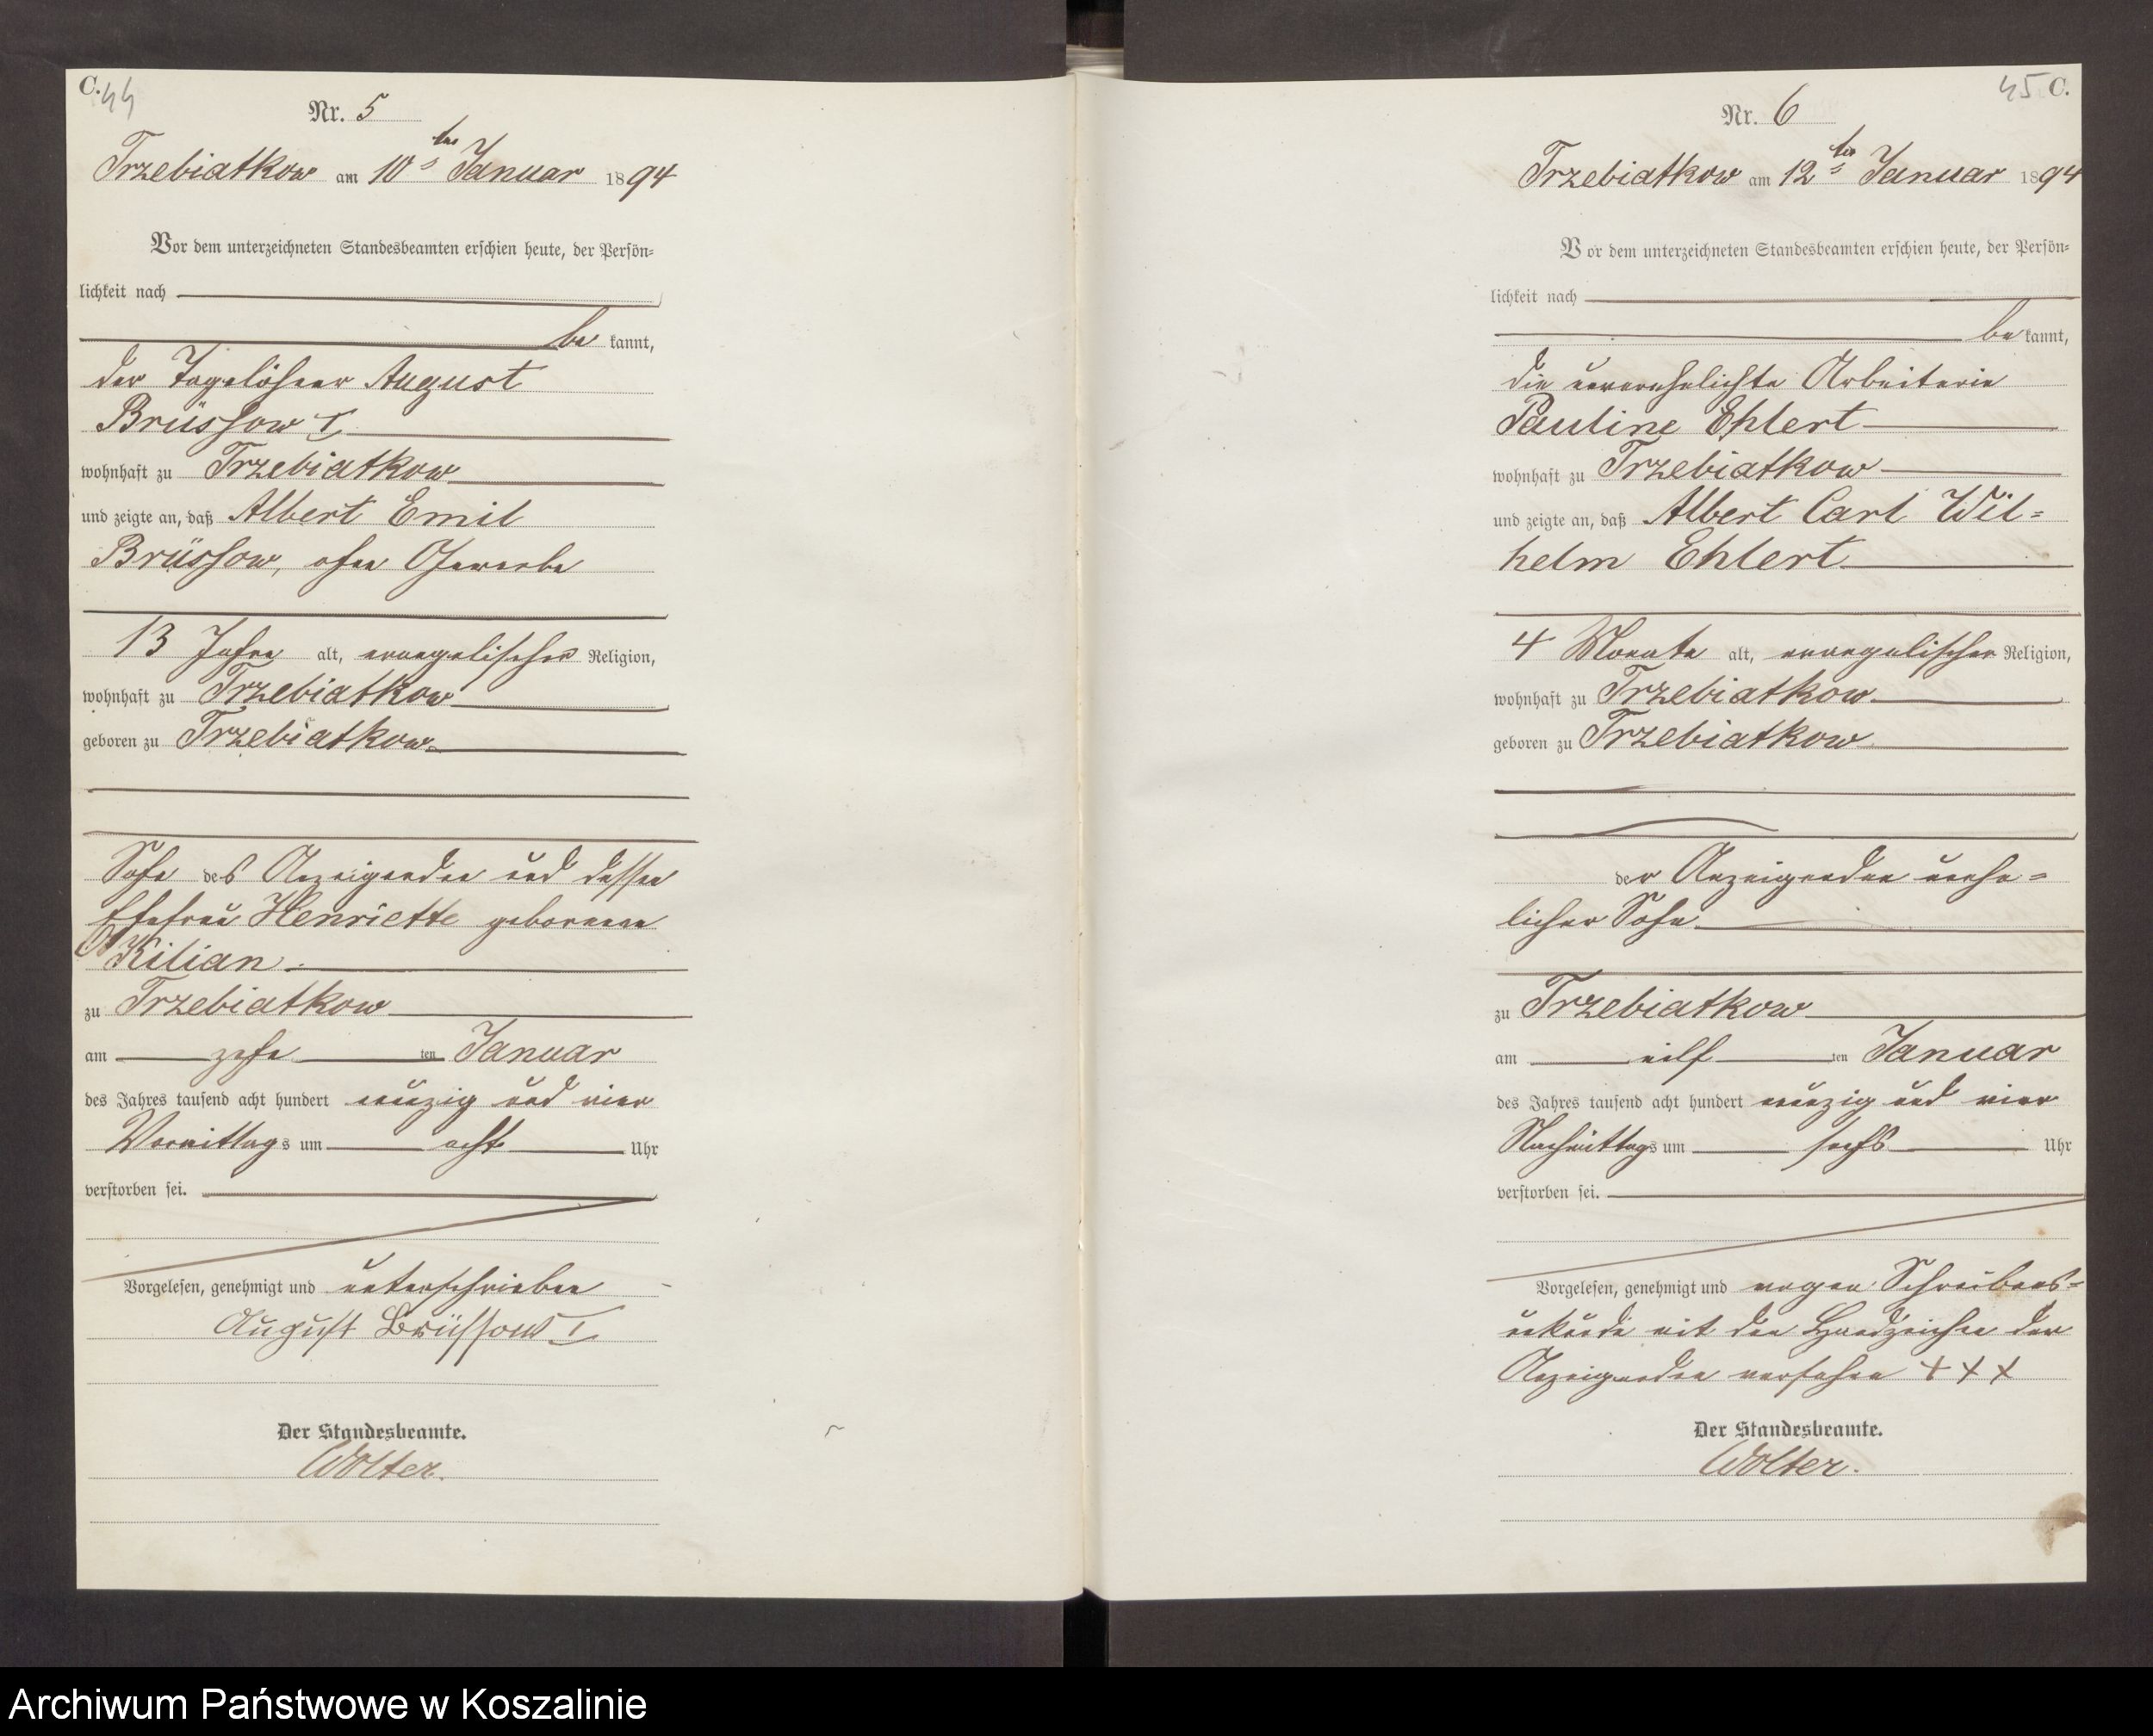 C.
44
Nr. 5
Trzebiatkow am 10ten Januar 1894
Vor dem unterzeichneten Standesbeamten erschien heute, der Persön=
lichkeit nach
be kannt,
der Tagelöhner August
Brüssow I
wohnhaft zu Trzebiatkow
und zeigte an, daß Albert Emil
Brüssow, ohne Gewerbe
13 Jahre alt, evangelischer Religion,
wohnhaft zu Trzebiatkow
geboren zu Trzebiatkow
Sohn des Anzeigenden und dessen
Ehefrau Henriette geborenen
Kilian.
zu Trzebiatkow
am zehn ten Januar
des Jahres tausend acht hundert neunzig und vier
Vormittags um acht Uhr
verstorben sei.
Vorgelesen, genehmigt und unterschrieben
August Brüssow I
Der Standesbeamte.
Wolter.
45 C.
Nr. 6
Trzebiatkow am 12ten Januar 1894
Vor dem unterzeichneten Standesbeamten erschien heute, der Persön=
lichkeit nach
be kannt,
die unverehelichte Arbeiterin
Pauline Ehlert
wohnhaft zu Trzebiatkow
und zeigte an, daß Albert Carl Wil=
helm Ehlert
4 Monate alt, evangelischer Religion,
wohnhaft zu Trzebiatkow
geboren zu Trzebiatkow
der Anzeigenden unehe=
licher Sohn
zu Trzebiatkow
am eilf ten Januar
des Jahres tausend acht hundert neunzig und vier
Nachmittags um sechs Uhr
verstorben sei.
Vorgelesen, genehmigt und wegen Schreibens=
unkunde mit den Handzeichen der
Anzeigenden versehen + + +
Der Standesbeamte.
Wolter.
Archiwum Państwowe w Koszalinie